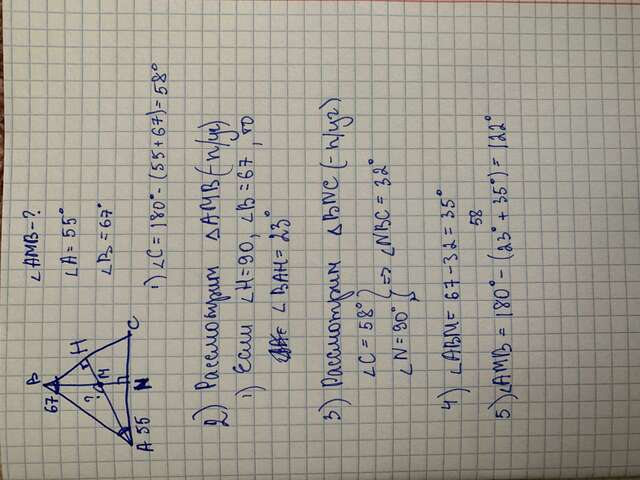 B
67
H
?
M
A 55
N
C
∠AMB-?
∠A=55°
∠B=67°
1) ∠C=180°-(55+67)=58°
2) Рассмотрим △AMB(-п/уг)
1) Если ∠H=90, ∠B=67, то
∠BAH=23°
3) Рассмотрим △BNC (-п/уг)
∠C=58°
∠N=90° } => ∠NBC=32°
4) ∠ABM=67-32=35°
58
5) ∠AMB=180°-(23°+35°)=122°